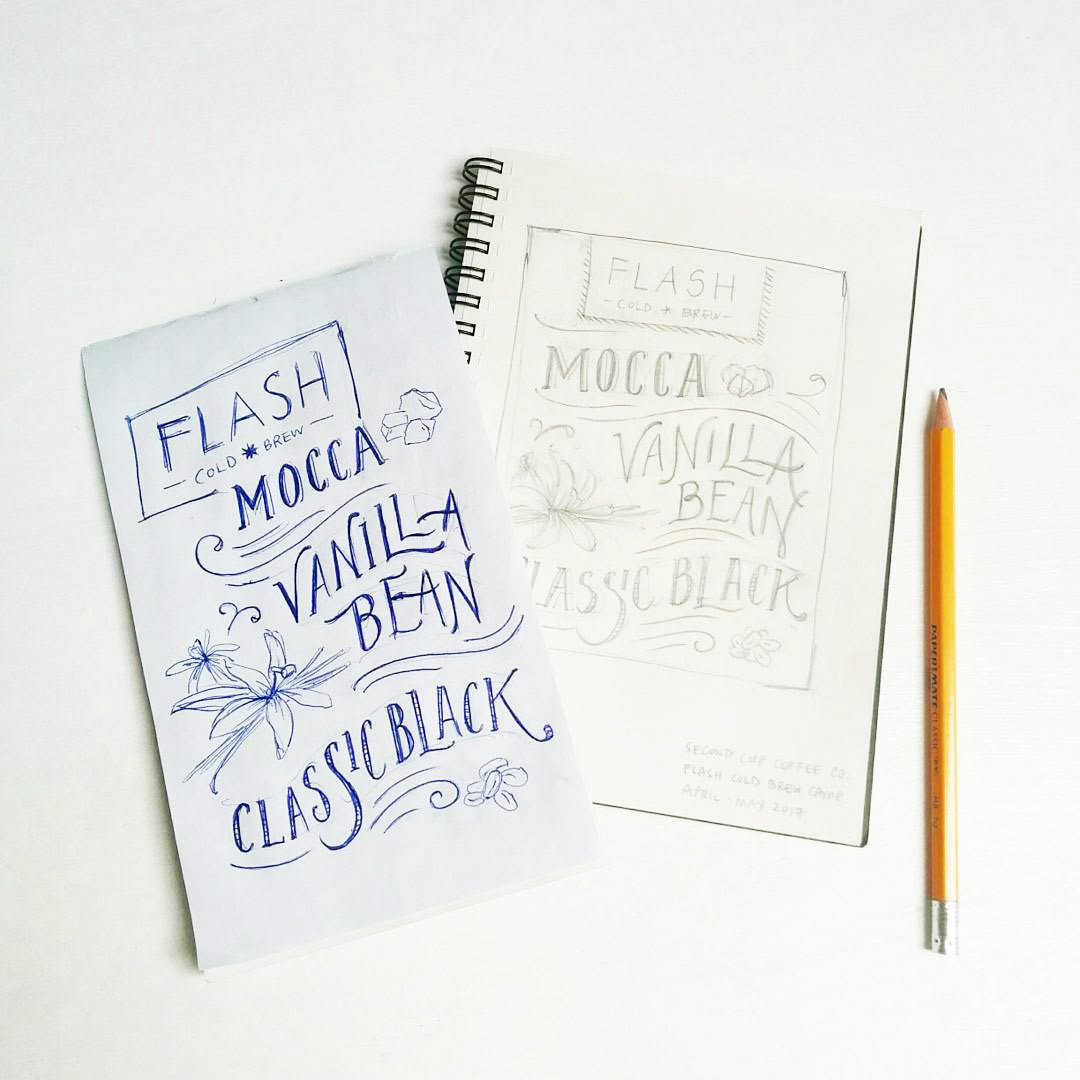 FLASH
COLD * BREW
MOCCA
VANILLA
BEAN
CLASSIC BLACK
FLASH
-COLD * BREW-
MOCCA
VANILLA
BEAN
CLASSIC BLACK
SECOND CUP COFFEE CO.
FLASH COLD BREW CAMP
APRIL - MAY 2017
PAPERMATE CLASSIC